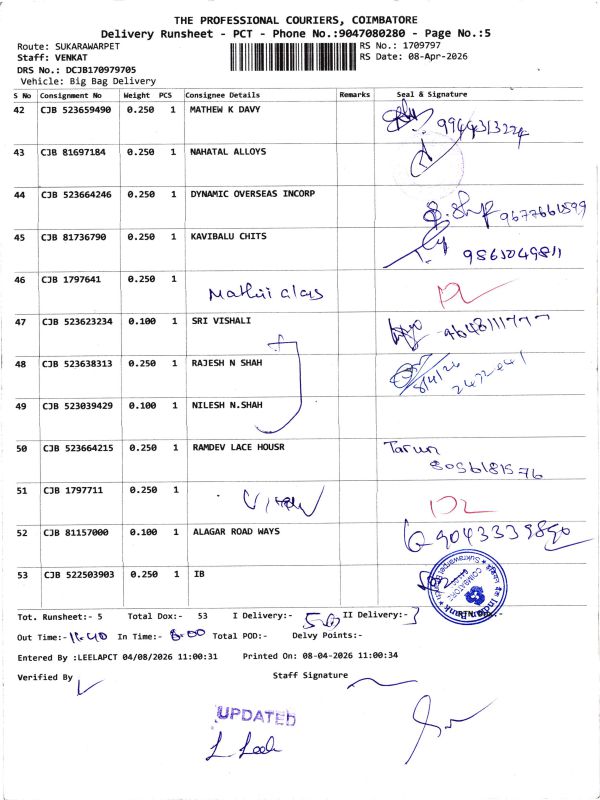 THE PROFESSIONAL COURIERS, COIMBATORE
Delivery Runsheet - PCT - Phone No.:9047080280 - Page No.:5
Route: SUKARAWARPET RS No.: 1709797
Staff: VENKAT RS Date: 08-Apr-2026
DRS No.: DCJB170979705
Vehicle: Big Bag Delivery
S No Consignment No Weight PCS Consignee Details Remarks Seal & Signature
42 CJB 523659490 0.250 1 MATHEW K DAVY
43 CJB 81697184 0.250 1 NAHATAL ALLOYS
44 CJB 523664246 0.250 1 DYNAMIC OVERSEAS INCORP
45 CJB 81736790 0.250 1 KAVIBALU CHITS
46 CJB 1797641 0.250 1
47 CJB 523623234 0.100 1 SRI VISHALI
48 CJB 523638313 0.250 1 RAJESH N SHAH
8/4/26
49 CJB 523039429 0.100 1 NILESH N.SHAH
50 CJB 523664215 0.250 1 RAMDEV LACE HOUSR Tarun
51 CJB 1797711 0.250 1
52 CJB 81157000 0.100 1 ALAGAR ROAD WAYS
53 CJB 522503903 0.250 1 IB
COIMBATORE
Tot. Runsheet:- 5 Total Dox:- 53 I Delivery:- 50 II Delivery:- 3
Out Time:- 11.40 In Time:- 8.00 Total POD:- Delvy Points:-
Entered By :LEELAPCT 04/08/2026 11:00:31 Printed On: 08-04-2026 11:00:34
Verified By Staff Signature
UPDATED